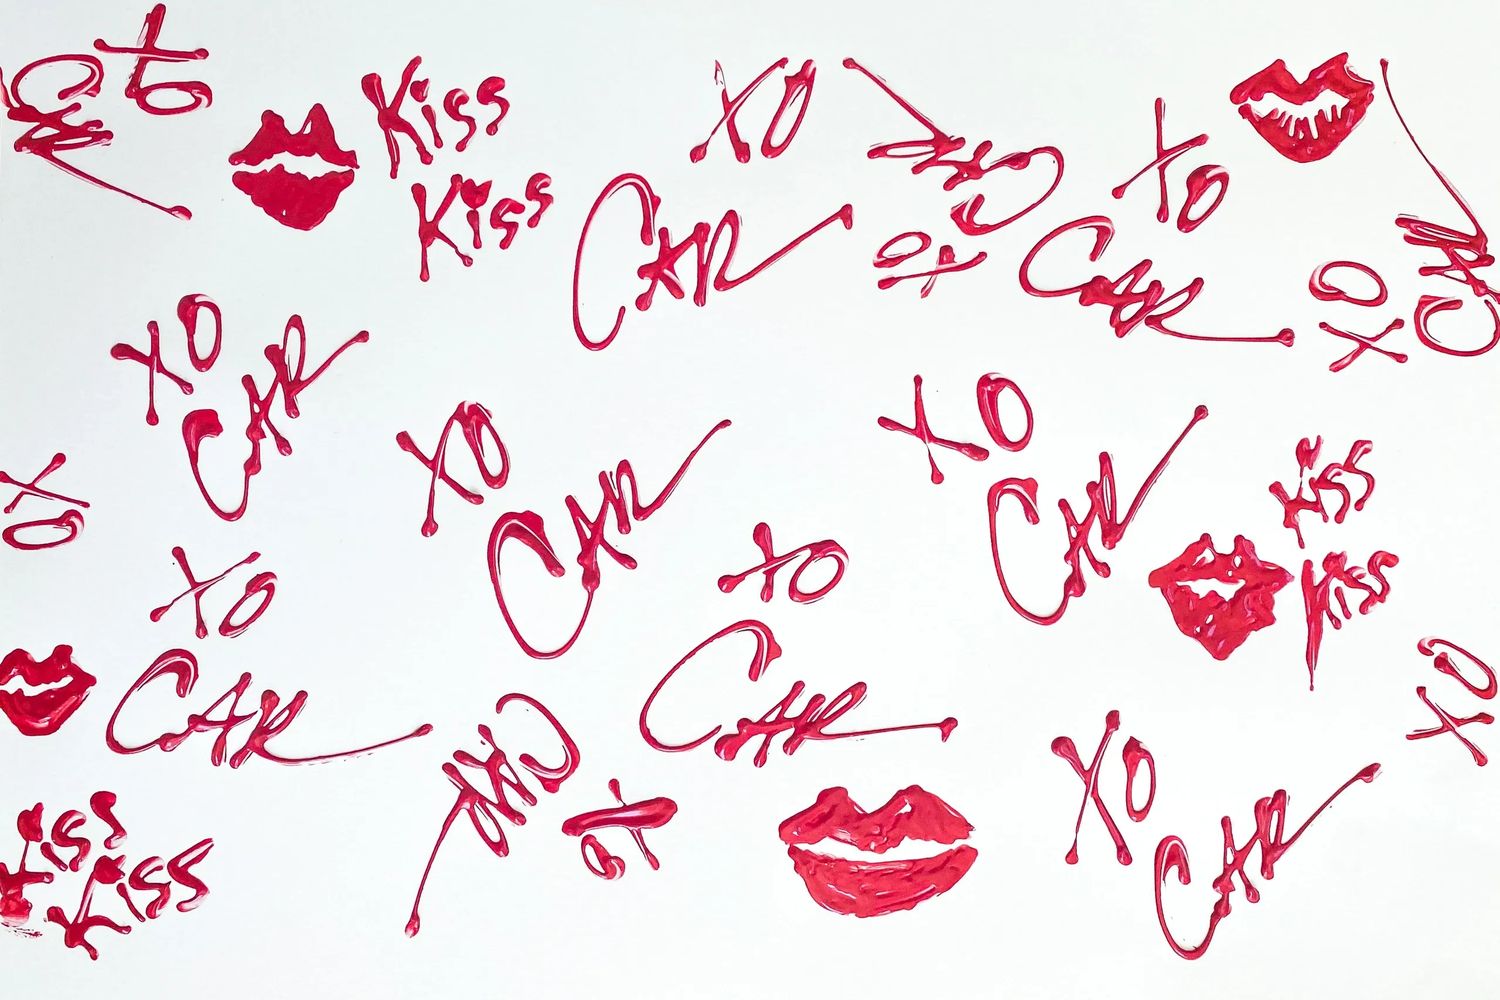 XO
CAR
Kiss
Kiss
XO
CAR
CAR
XO
XO
CAR
XO
CAR
XO
CAR
XO
CAR
XO
CAR
Kiss
Kiss
XO
XO
CAR
XO
CAR
XO
Kiss
Kiss
CAR
XO
XO
CAR